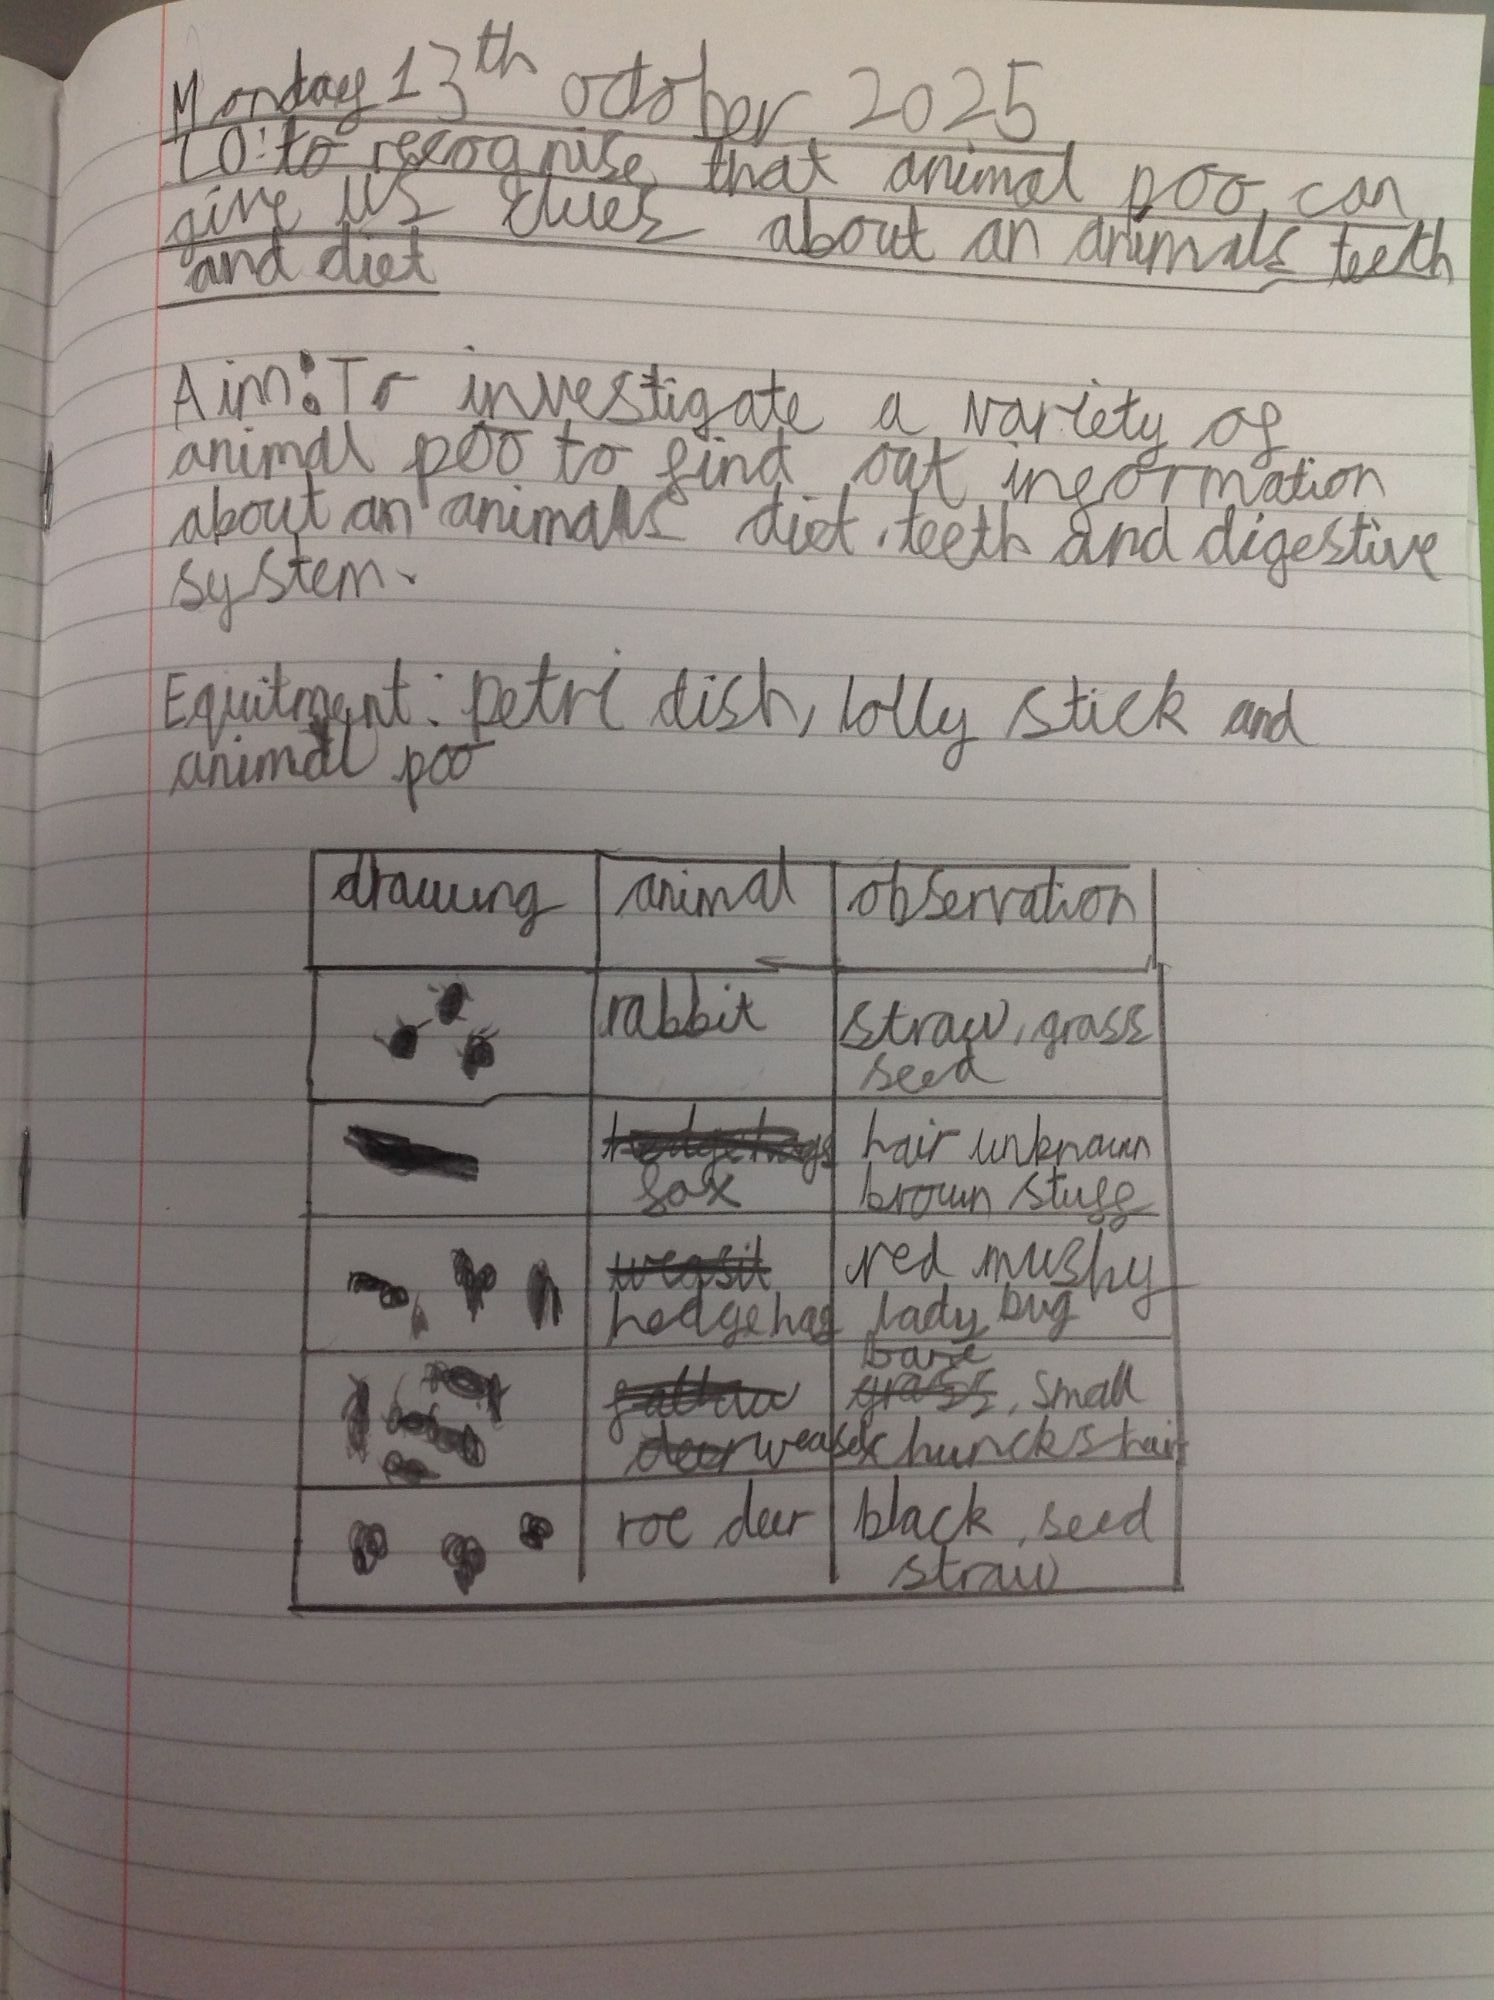 Monday 13th october 2025
LO: to recognise that animal poo can
give us clues about an animals teeth
and diet
Aim: To investigate a variety of
animal poo to find out information
about an animals diet, teeth and digestive
system.
Equitment: petri dish, lolly stick and
animal poo
drawing animal observation
rabbit straw, grass
seed
hedgehogs hair unknown
fox brown stuff
weasil red mushy
hedgehog lady bug
bone
fallow grass, small
deer weasel chuncks hair
roe deer black, seed
straw